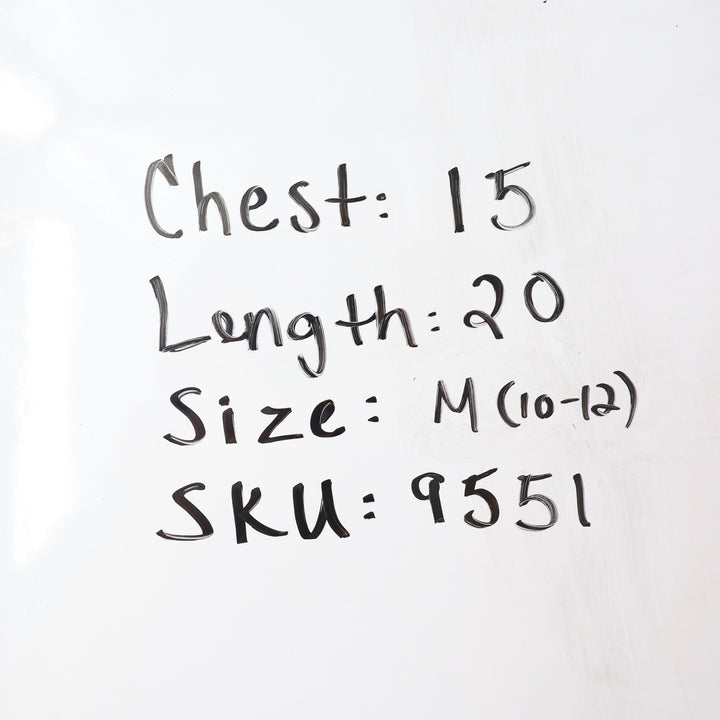 Chest: 15
Length: 20
Size: M (10-12)
SKU: 9551